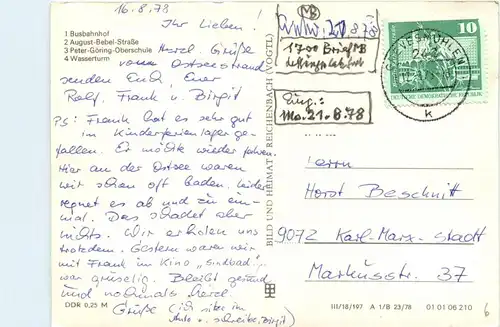 16.8.78
Ihr Lieben!
1 Busbahnhof
2 August-Bebel-Straße
3 Peter-Göring-Oberschule
4 Wasserturm
Herzl. Grüße
vom Ostseestrand
senden Euch, Euer
Rolf, Frank u. Birgit
PS: Frank hat es sehr gut
im Kinderferienlager ge-
fallen. Er möchte wieder fahren.
Hier an der Ostsee waren
wir schon oft baden. Leider
regnet es ab und zu ein-
mal. Das schadet aber
nichts. Wir erholen uns
trotzdem. Gestern waren wir
mit Frank im Kino „Sindbad",
war gruselig. Bleibt gesund
und nochmals herzl.
Grüße (ich sitze im
Auto u. schreibe, Birgit)
DDR 0,25 M
BILD UND HEIMAT REICHENBACH (VOGTL)
8.78
1700
Eing.:
Mo. 21.8.78
GREVESMÜHLEN
k
10
DEUTSCHE DEMOKRATISCHE REPUBLIK
Herrn
Horst Beschnitt
9072 Karl-Marx-Stadt
Markusstr. 37
III/18/197 A 1/B 23/78 01 01 06 210
6